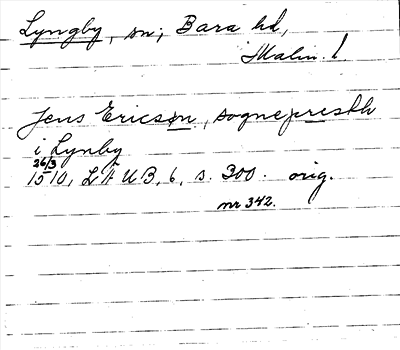 Lyngby, sn; Bara hd,
Malm. l
Jens Ericsøn, sognepresth
i Lynby
26/3
1510, LÄUB, 6, s. 300. orig.
nr 342.